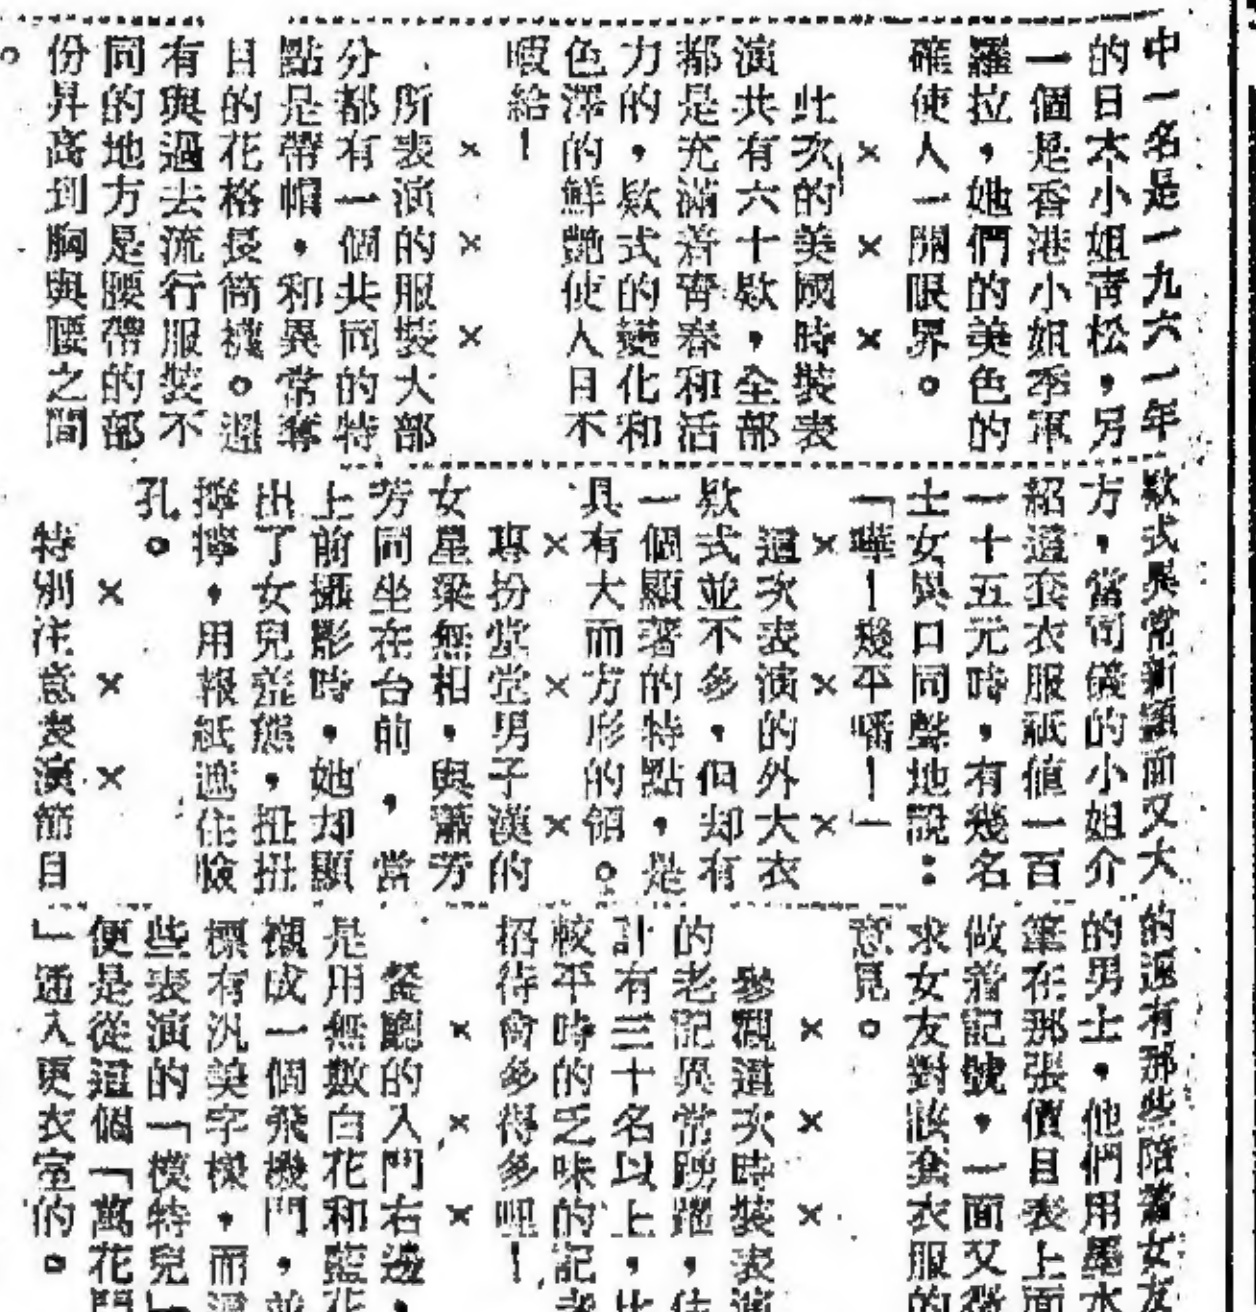 中一名是一九六一年
的日本小姐靑松，另
一個是香港小姐季軍
羅拉，她們的美色的
確使人一開眼界。
×　×　×
此次的美國時裝表
演共有六十欵，全部
都是充滿着靑春和活
力的，欵式的變化和
色澤的鮮艷使人目不
暇給！
×　×　×
所表演的服裝大部
分都有一個共同的特
點是帶帽，和異常奪
目的花格長筒襪。還
有與過去流行服裝不
同的地方是腰帶的部
份昇高到胸與腰之間
。
欵式異常新穎而又大
方，當司儀的小姐介
紹這套衣服祇值一百
一十五元時，有幾名
士女異口同聲地說：
「嘩！幾平噃！」
×　×　×
這次表演的外大衣
欵式並不多，但却有
一個顯著的特點，是
具有大而方形的領。
×　×　×
專扮堂堂男子漢的
女星梁無相，與蕭芳
芳同坐在台前，當
上前攝影時，她却顯
出了女兒羞態，扭扭
擰擰，用報紙遮住臉
孔。
×　×　×
特別注意表演節目
的還有那些陪着女友
的男士，他們用墨水
筆在那張價目表上面
做着記號，一面又徵
求女友對該套衣服的
意見。
×　×　×
參觀這次時裝表演
的老記異常踴躍，估
計有三十名以上，比
較平時的乏味的記者
招待會多得多哩！
×　×　×
餐廳的入門右邊，
是用無數白花和藍花
襯成一個飛機門，並
標有汎美字樣，而這
些表演的「模特兒」
便是從這個「萬花門
」通入更衣室的。